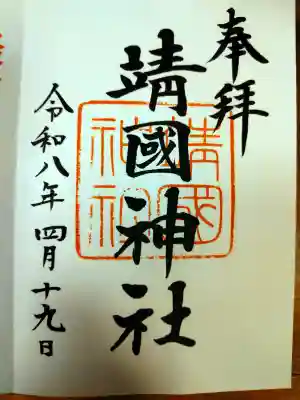 奉拝
靖國神社
靖國
神社
令和八年四月十九日